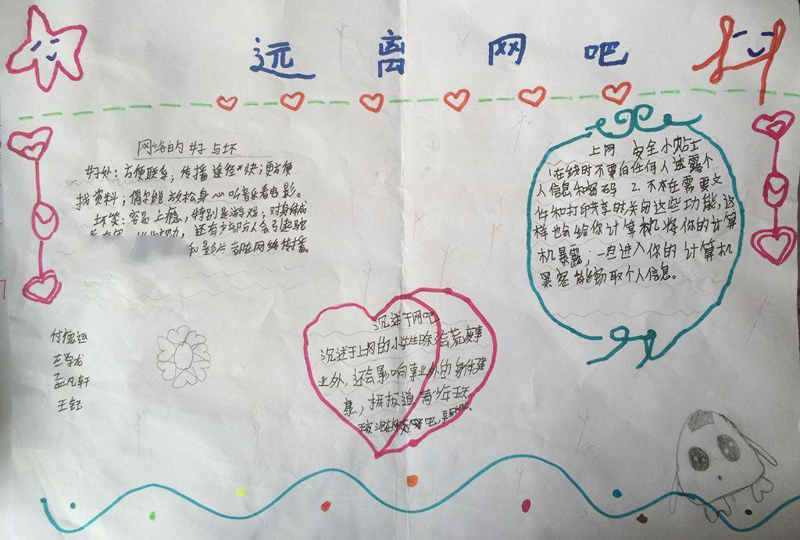 远离网吧
网络的好与坏
好处:方便联系;传播途径快;更方便
找资料;偶尔能放松身心听音乐看电影。
坏笑:容易上瘾,特别是游戏;对身体
还有少部分人会引起
和 影片 部在网络传播
付
孟凡轩
王钰
沉迷于网吧
沉迷于上网的小学生除 荒废事
业外,还会影响 的身体健
康,据报道青少年
上网安全小贴士
1.在线时不要向任何人透露个
人信息和密码 2.不在需要文
件和打印共享时关闭这些功能,这
样也会给你计算机将你的计算
机暴露,一旦进入你的计算机
黑客就能窃取个人信息。